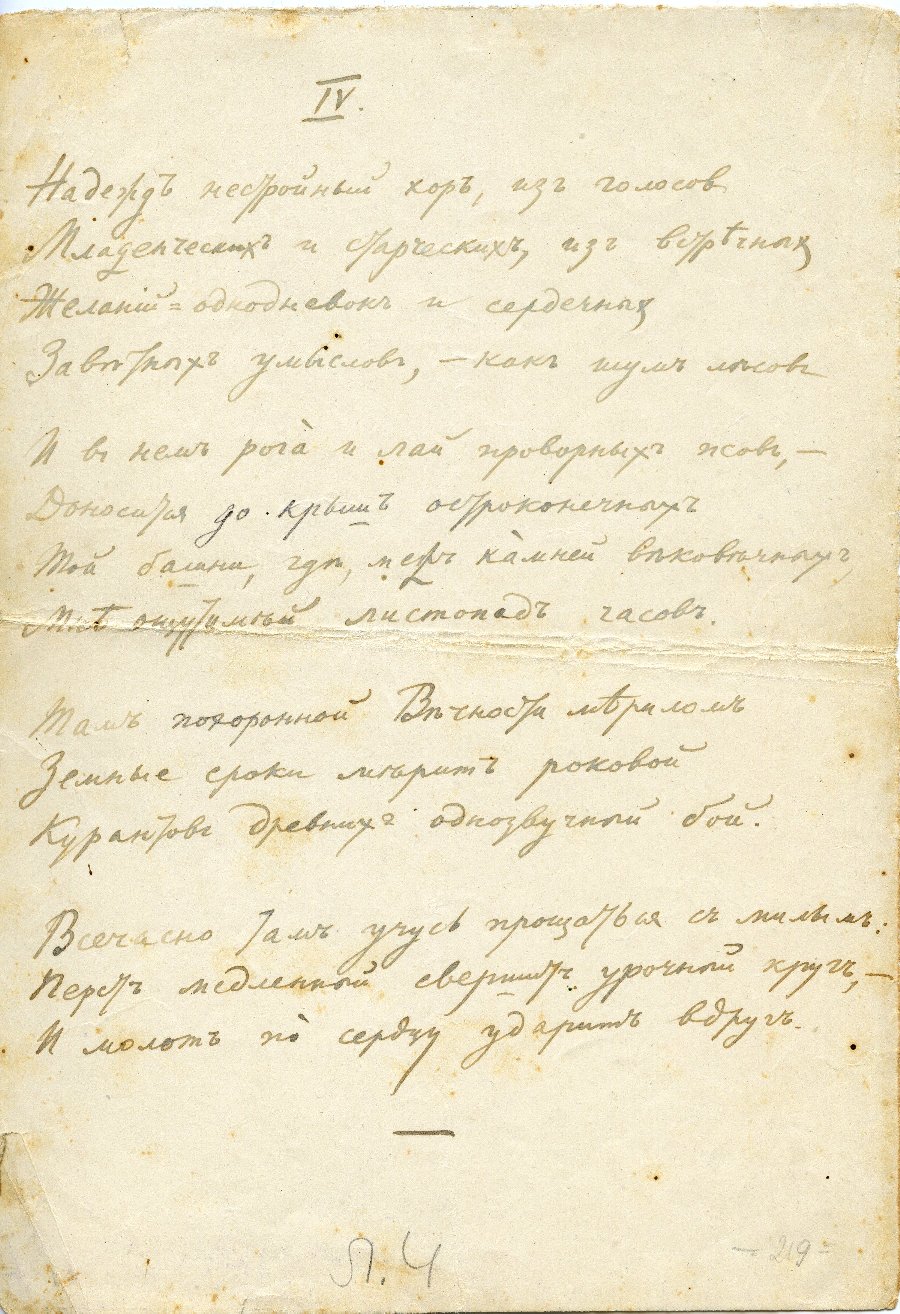 IV.
Надеждъ нестройный хоръ, изъ голосов
Младенческихъ и старческихъ, изъ встрѣчных
Желаній-однодневокъ и сердечных
Завѣтныхъ умысловъ, – какъ шумъ лѣсовъ
И въ немъ рога̀ и лай проворныхъ псовъ, –
Доносится до крышъ остроконечныхъ
Той башни, гдѣ, межъ ка̀мней вѣковѣчныхъ,
Мнѣ ощутимый листопадъ часовъ.
Тамъ похоронной Вѣчности мѣриломъ
Земные сроки мѣритъ роковой
Курантовъ древнихъ однозвучный бой.
Всечасно тамъ учусь прощаться съ милымъ:
Перстъ медленный свершитъ урочный кругъ, –
И молотъ по̀ сердцу ударитъ вдругъ.
Л. 4
– 219 –